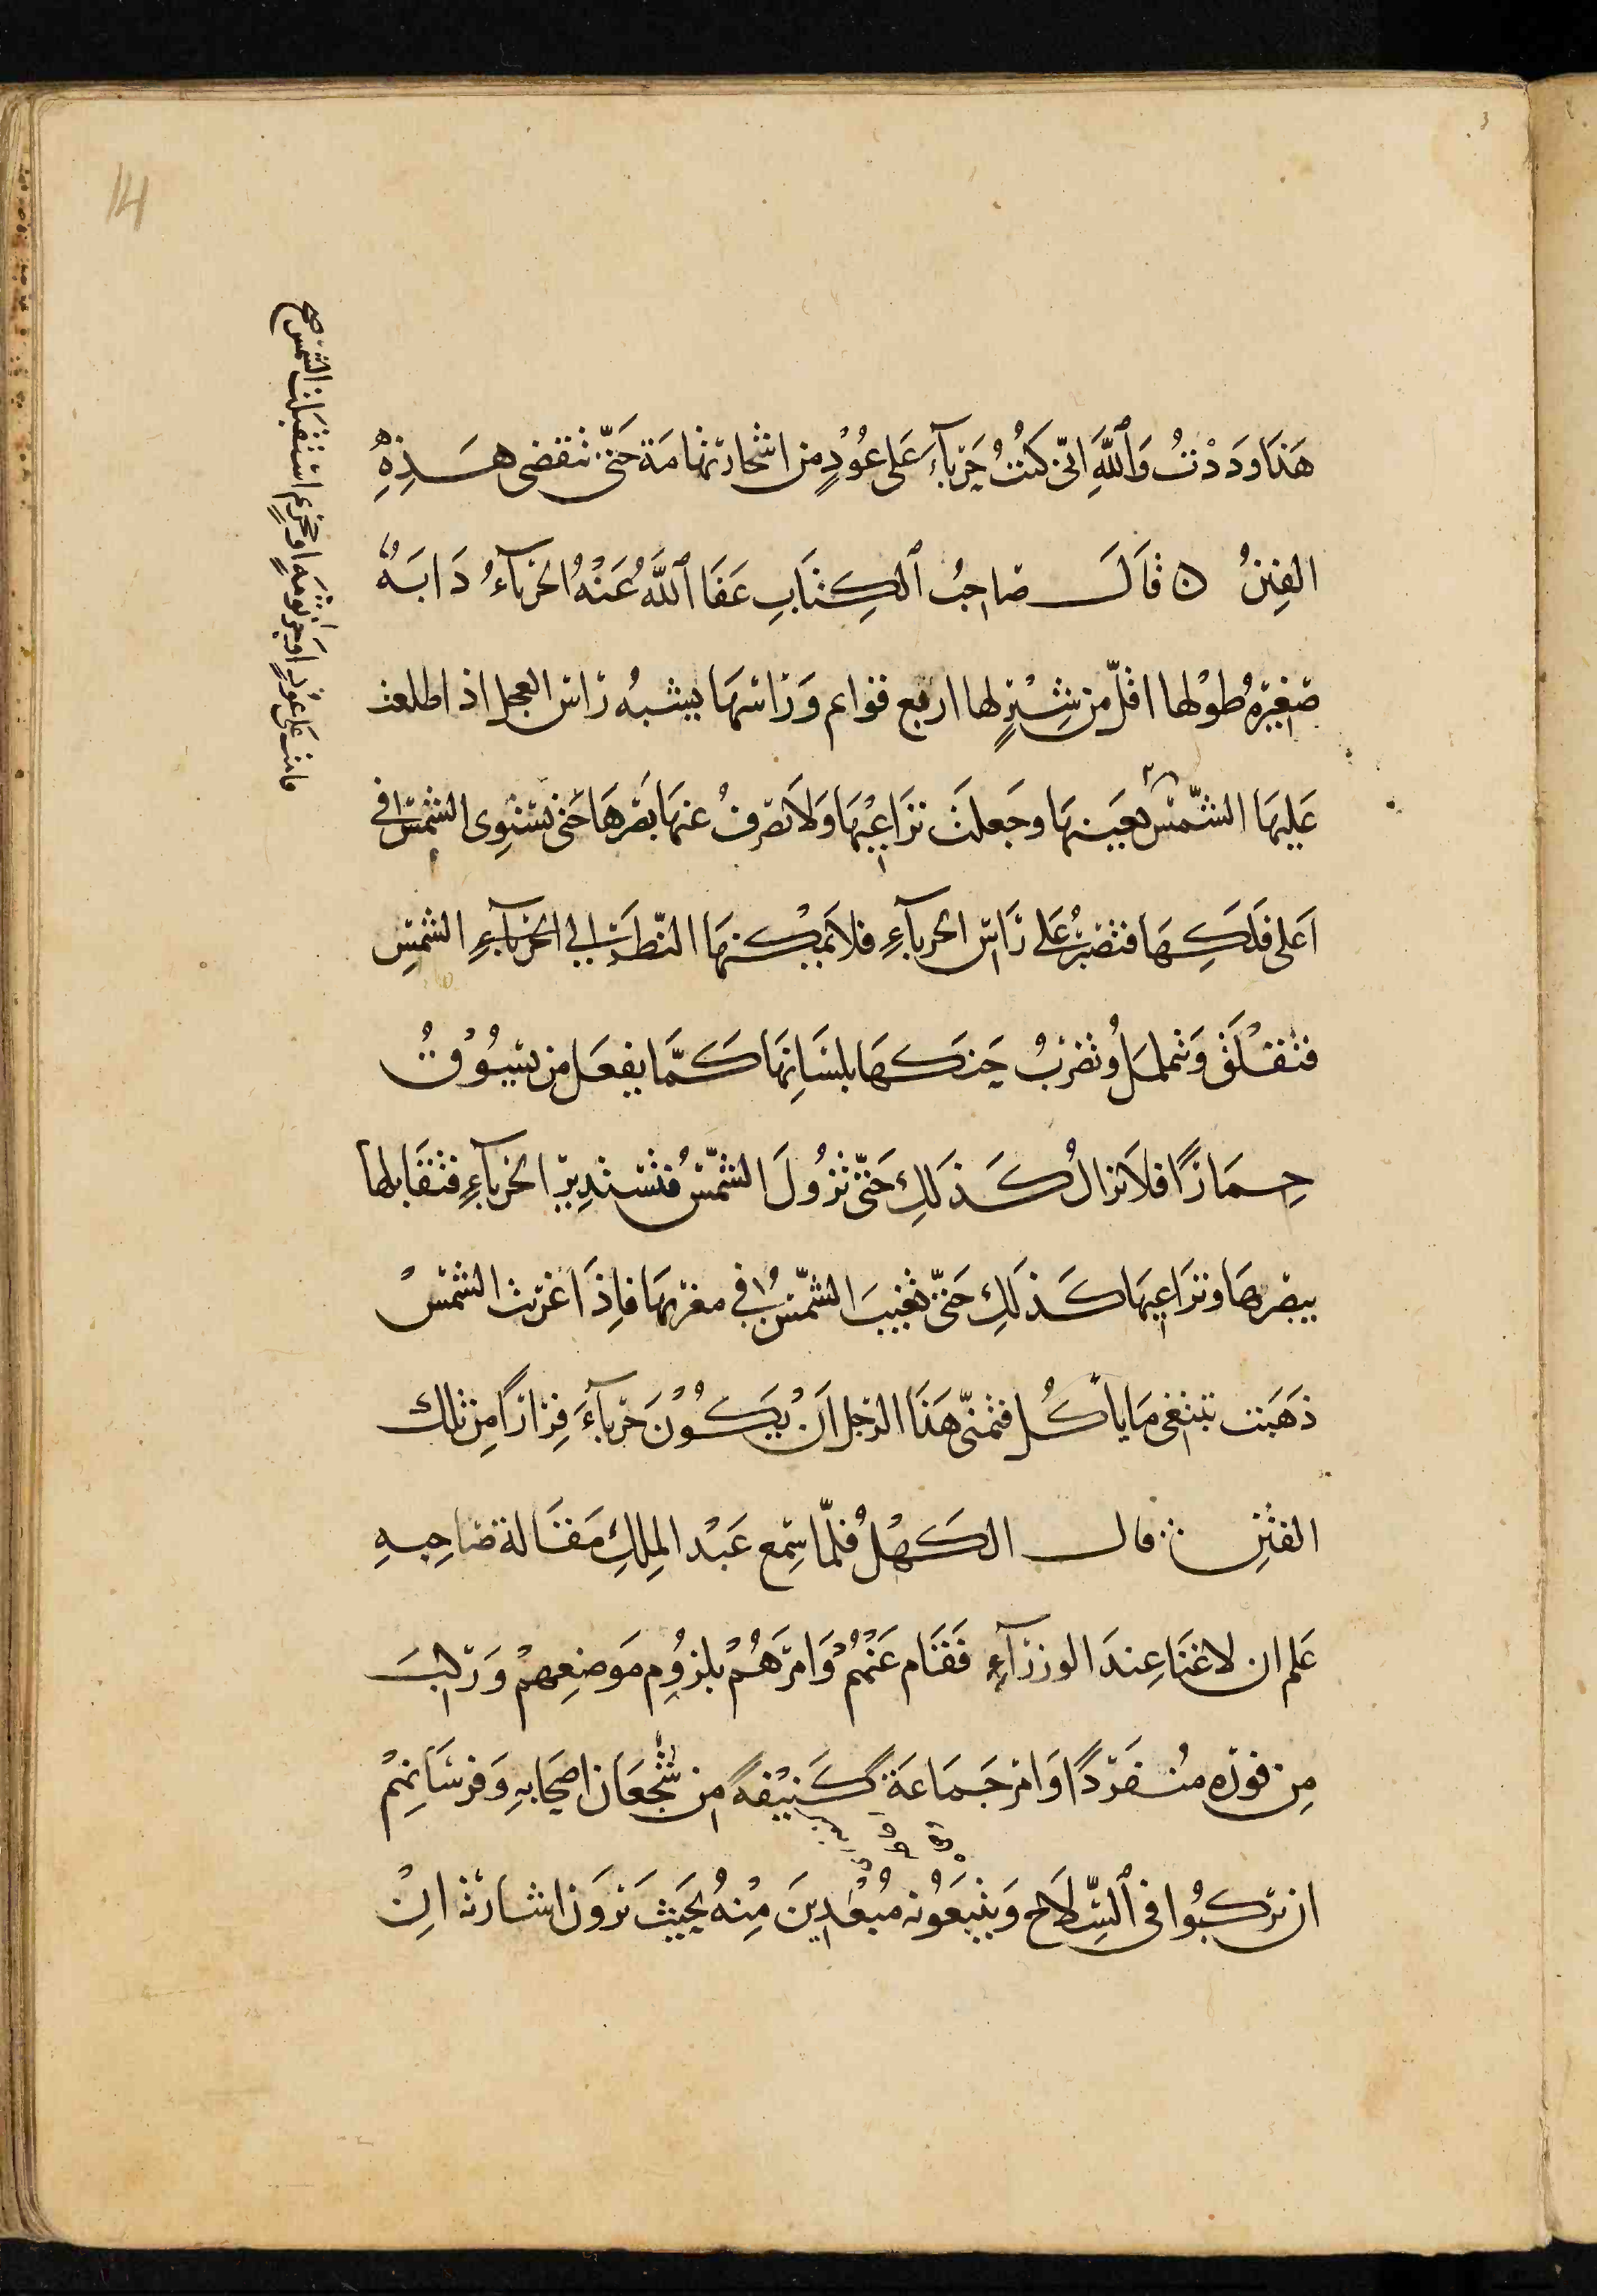 14
هَذَا وَدَدْتُ وَاللَّهِ اَنّى كُنْتُ حِرْبآءَ عَلى عُوْدٍ من اشجار تهامَة حَتّى تنقضى هَذِهِ
الفِتنُ ۞ قَالَ صَاحِبُ الكِتَابِ عَفَا اللَّهُ عَنْهُ الحرْبآءُ دَابَةٌ
صَغِيْرَةٌ طوْلها اقلّ من شِبْرٍ لها اربَع قوائم وَرَاسُهَا يشبهُ رَاسَ العجل اذا طلعت
عَليهَا الشّمْسُ بعَينهَا وجَعلتَ تَرَاعِيْهَا وَلَا تصْرفُ عنهَا بصَرهَا حَتى تسْتَوِى الشّمسُ فى
اَعلى فَلَكِهَا فتَصيْرُ عَلى رَاس الحربآءِ فلا يمْكنهَا النّظرَ الى الحربآءِ الشمسِ
فتقْلَقُ وَتململُ وتضربُ حَنكَهَا بلسَانِهَا كَمَا يفعَل من يَسُوْقُ
حِمَارًا فلَا تزالُ كَذلِكَ حَتّى تزُولَ الشّمْسُ فتسْتَدِيرُ الحربآءِ فتقَابلها
ببصرهَا وترَاعِيهَا كَذلِكَ حَتّى تغيبَ الشّمسُ فى مغربهَا فاِذَا غرَبت الشّمسُ
ذهَبَت تبتغى مَا ياكُل فتمنّى هَذَا الرّجل اَنْ يكُوْنَ حربآءَ فِرَارًا مِن تلك
الفتَنِ ∴ قال الكَهْلُ فلمّا سَمع عَبْد المِلك مَقَالة صَاحِبهِ
عَلم ان لا غنَا عِندَ الوزرَآءِ فَقَام عَنْهُمْ وَامَرهُمْ بلزُوم مَوضِعهِمْ وَرَكِبَ
مِن فوره مُنفَرِدًا وَامر جَمَاعَةً كَثِيْفَةً مِن شُجْعَان اصحَابهِ وَفرسَانِهمْ
ان يركبُوا فى السِّلَاح وَيَتْبَعُونه مُبْعِدِينَ مِنْهُ بحَيث يَرَوَن اشَارته ان
قامت على عُودٍ او جرثومَه او محزم استقبلت الشمس صح